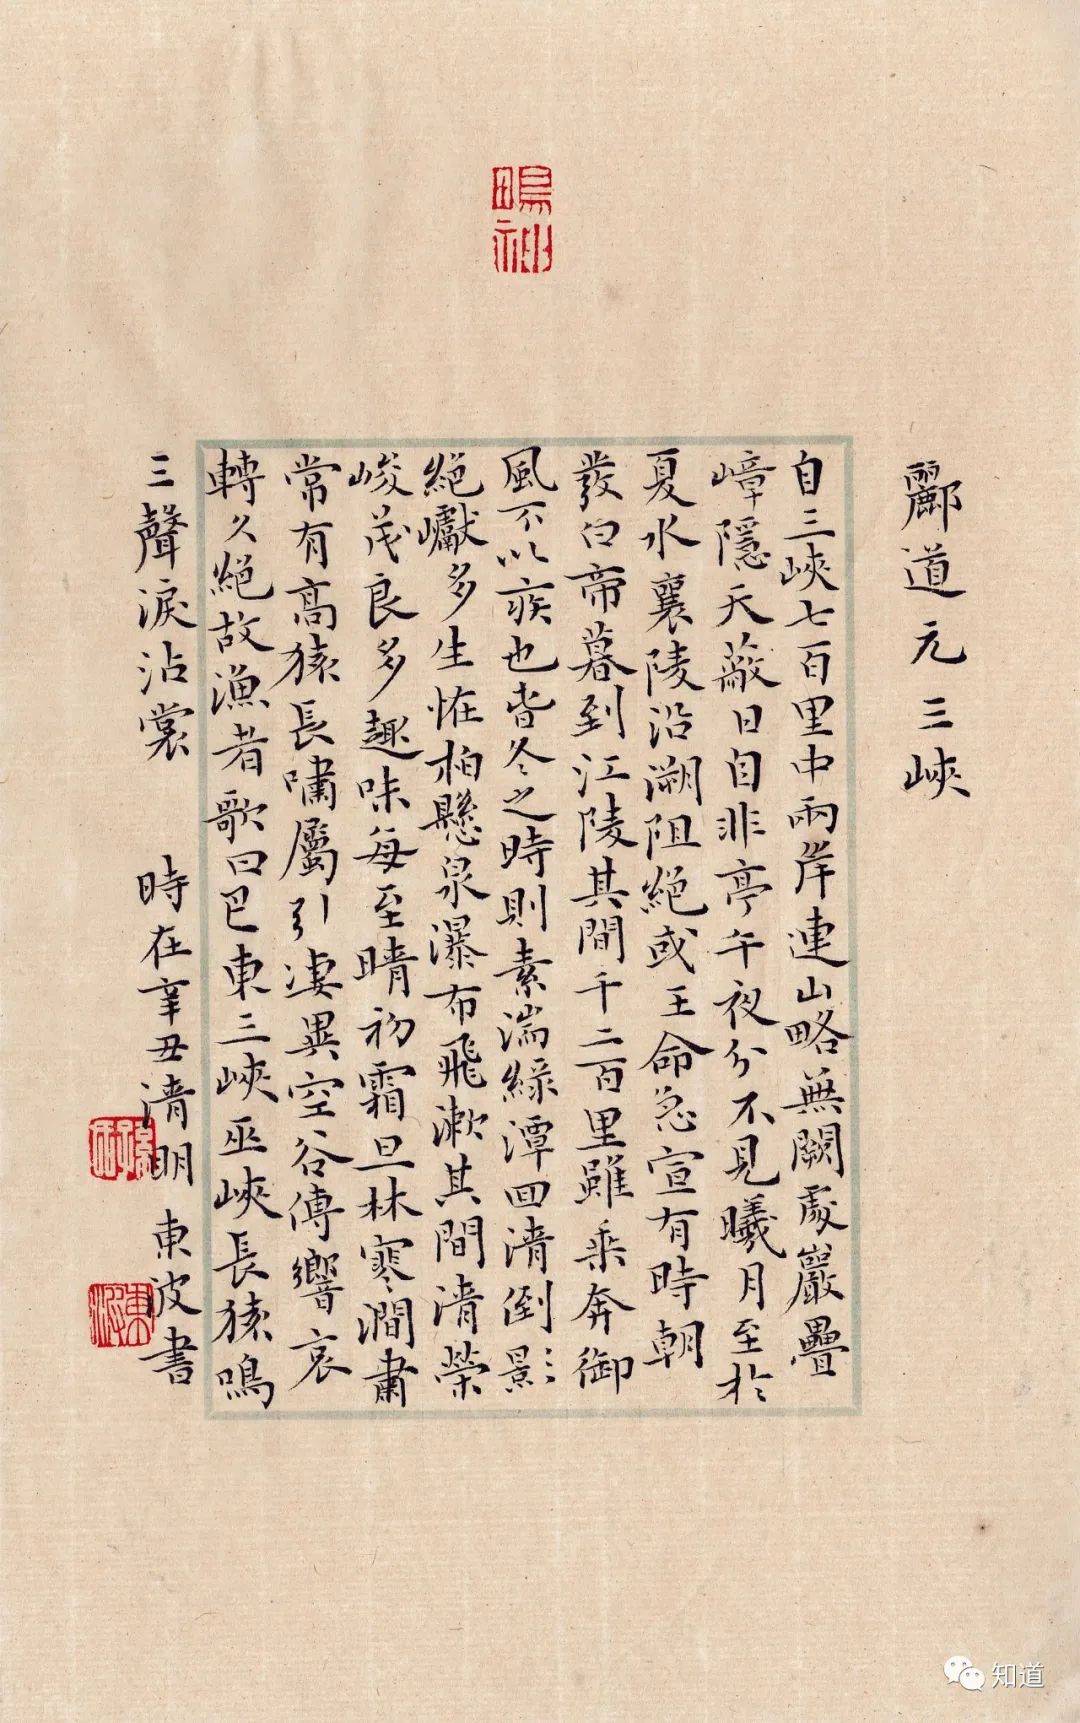 酈道元三峽
自三峽七百里中兩岸連山略無闕處巖疊
嶂隱天蔽日自非亭午夜分不見曦月至於
夏水襄陵沿溯阻絕或王命急宣有時朝
發白帝暮到江陵其間千二百里雖乘奔御
風不以疾也春冬之時則素湍綠潭回清倒影
絕巘多生怪柏懸泉瀑布飛漱其間清榮
峻茂良多趣味每至晴初霜旦林寒澗肅
常有高猿長嘯屬引淒異空谷傳響哀
轉久絕故漁者歌曰巴東三峽巫峽長猿鳴
三聲淚沾裳 時在辛丑清明 東波書
知道